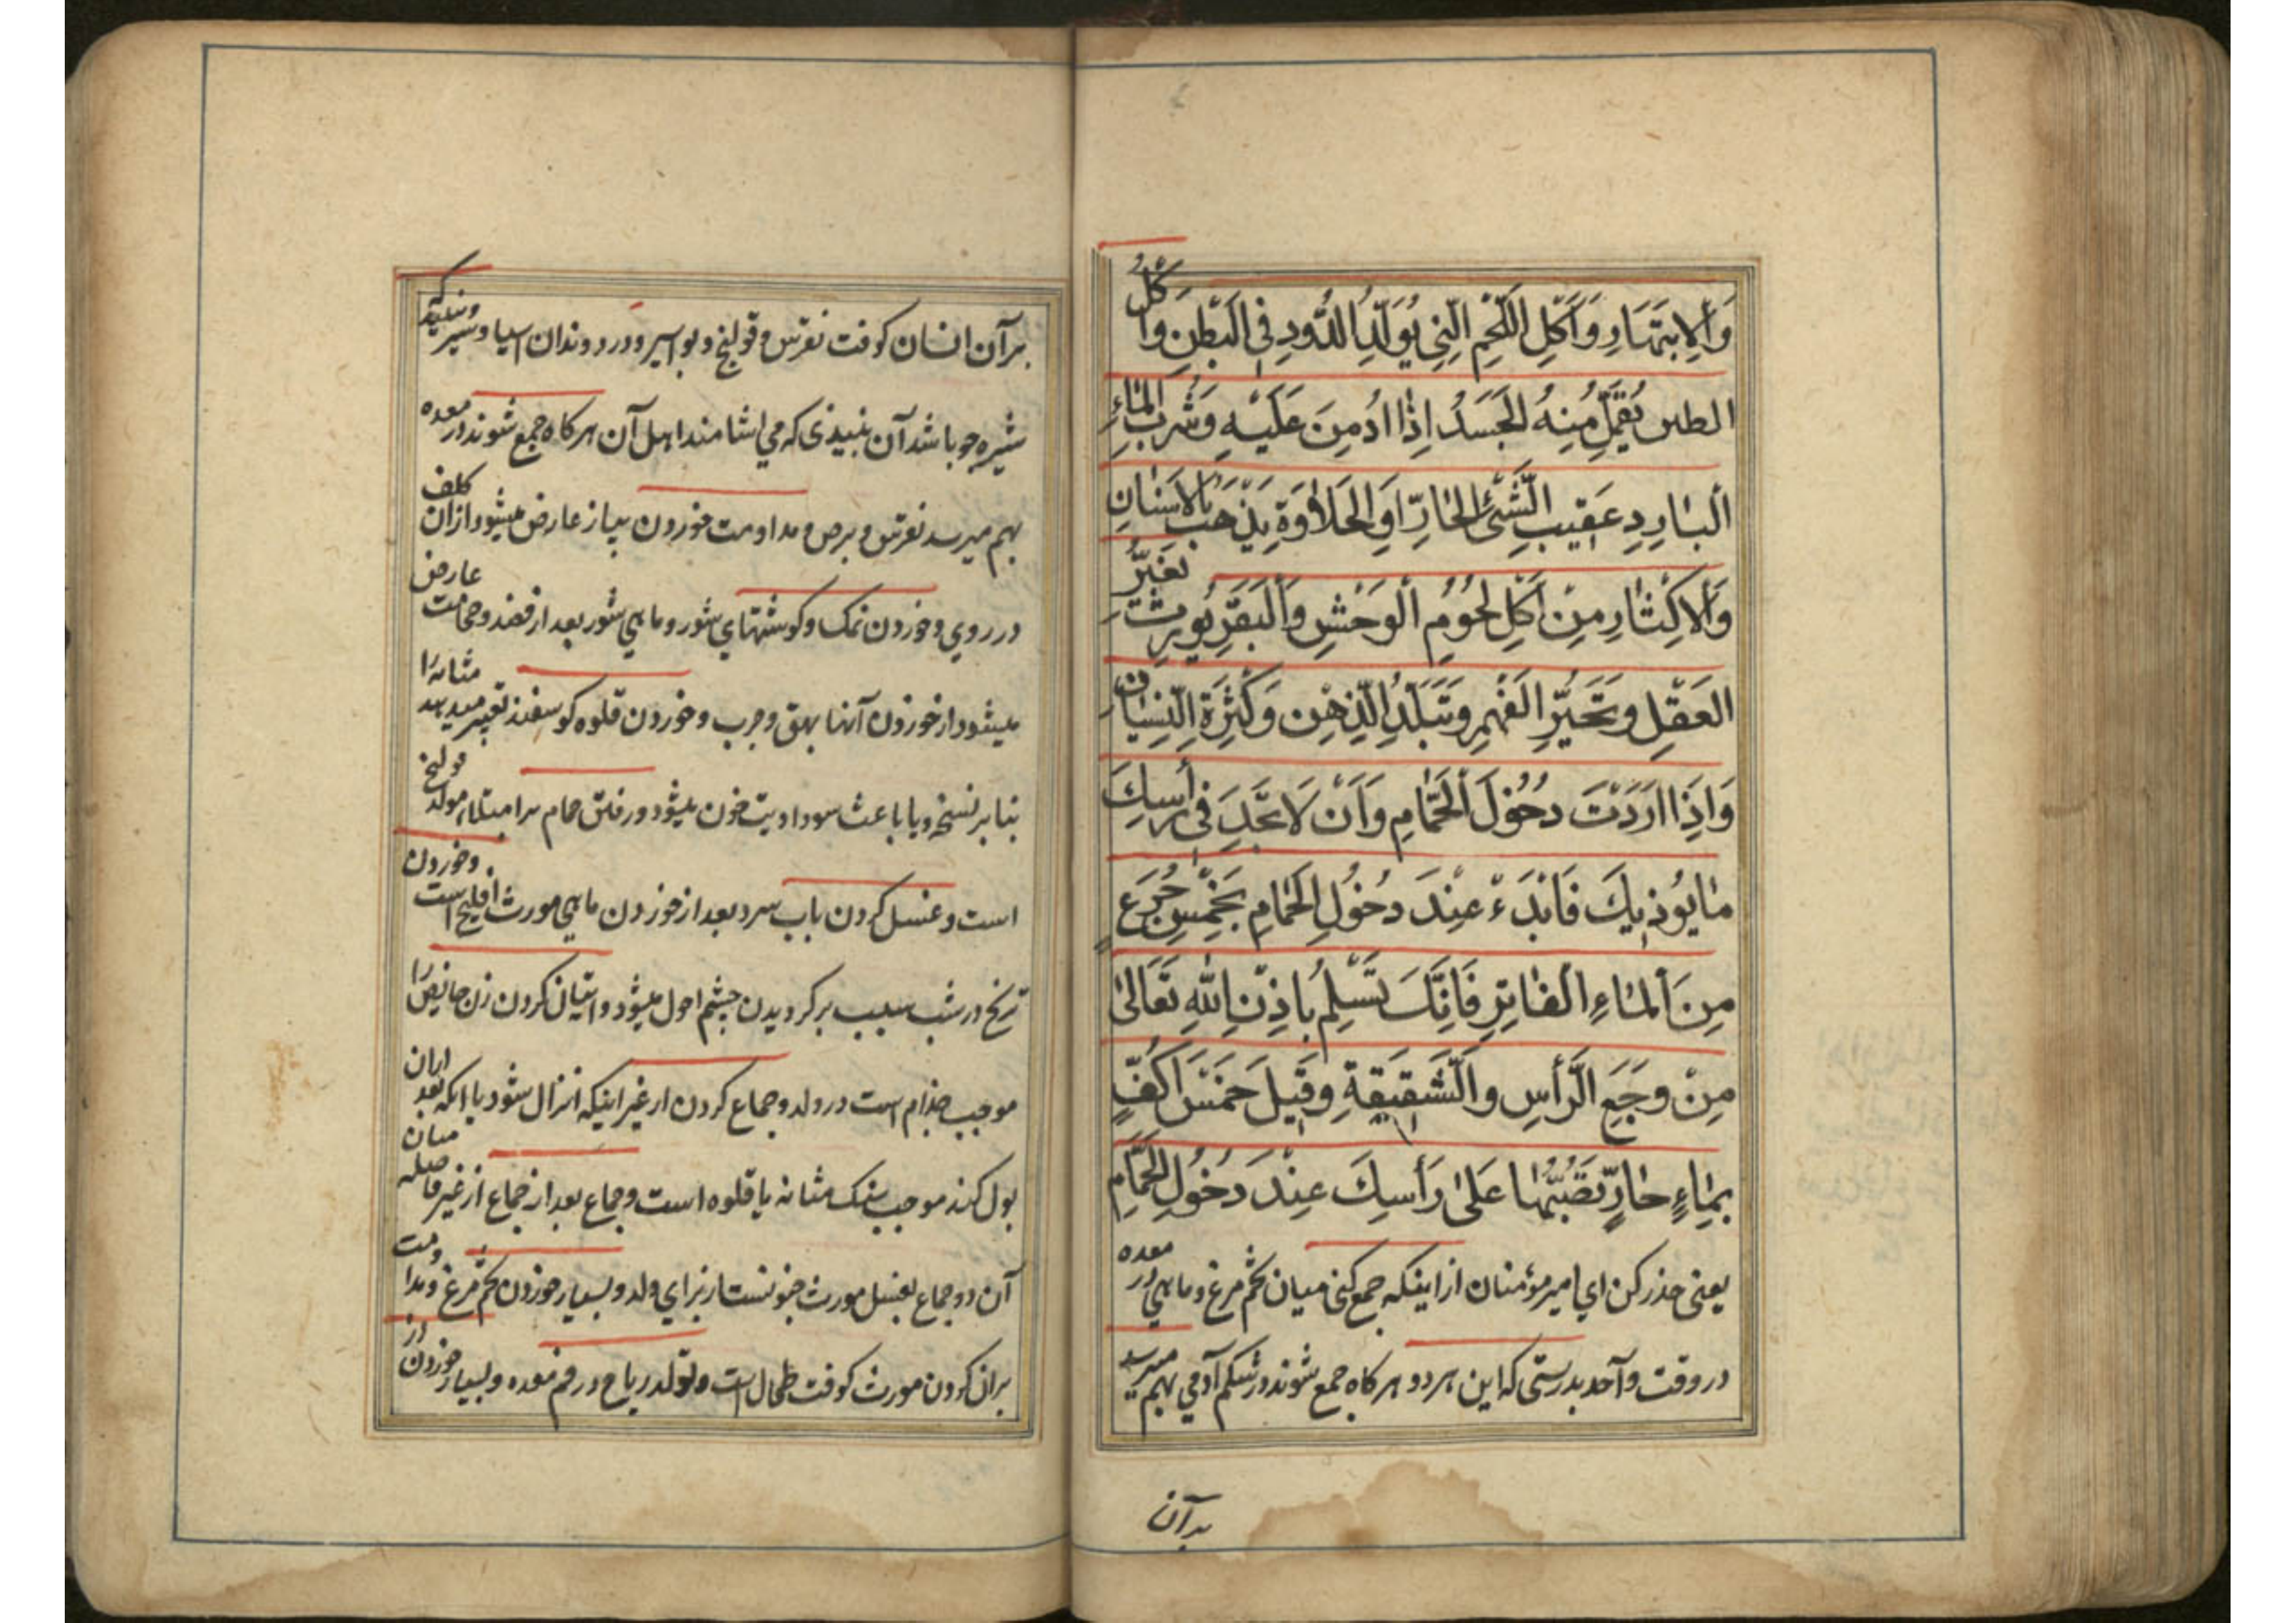 وَالاِبتِهَارِ وَاَكْلِ اللَّحْمِ النِّيِ يُوَلِّدُ الدُّودِ فِي الْبَطْنِ وَاَكْل
الطين يُقَمِّلُ مِنهُ الْجَسَدُ اِذَا ادُمِنَ عَلَيْهِ وَشُربُ الْمَاءِ
اَلبَارِدِ عَقِيبِ الشَّىْءِ الحَارِّ اَوِ الحَلاَوَةِ يَذْهَب بِالاَسنَانِ
وَالاِكْثَارِ مِنْ اَكْلِ لحُومِ الْوَحْشِ وَالْبَقَرِ يُورِث تَغَيُّرَ
العَقْلِ وَتَحَيُّرِ الفَهْمِ وَتَبَلُّدِ الذِّهْنِ وَكَثْرَةِ النِّسْيَانِ
وَاِذَا اَرَدْتَ دخُولَ اَلحَمَّامِ وَاَنْ لَا تجَدَ فى رَأسِكَ
مَا يُوُذِيكَ فَابْدَءْ عِنْدَ دخُولِ الحَمَامِ بَخَمْسِ جُرَعٍ
مِنَ اَلْمَاءِ الفَاتِرِ فَاِنَّكَ تَسْلِمُ بِاذِنِ اللهِ تَعَالىٰ
مِنْ وَجَعِ الرَّأسِ وَالشَّقِيقَةِ وَقِيلَ خمَسَ اَكُفٍّ
بِمَاءٍ حَارٍّ تَصُبُّهَا عَلىٰ رَأسِكَ عِنْدَ دَخُولِ الحَمَّامِ
يعنى حذر كن اي امير مؤمنان از اينكه جمع كنى ميان تخم مرغ و ماهي در معده
در وقت واحد بدرستى كه اين هر دو هر كاه جمع شوند در شكم آدمي بهم ميرسد
بدآن
بر آن انسان كوفت نقرس و قولنج و بواسير و درد دندان آسيا و شير و نبيذيكه
شيره جو باشد آن نبيذى كه مي اشامند اهل آن هر كاه جمع شوند در معده
بهم ميرسد نقرس و برص و مداومت خوردن پياز عارض ميشود از ان كلف
در روي و خوردن نمك و كوشتهاي شور و ماهي شور بعد از فصد و حجامت عارض
ميشود از خوردن آنها بهق و جرب و خوردن قلوه كوسفند تغيير ميدهد مثانه را
بنا بر نسخه و يا باعث سوداويت خون ميشود و رفتن حمام بر امتلاء مولد قولنج
است و غسل كردن باب سرد بعد از خوردن ماهي مورث افليج است و خوردن
ترنج در شب سبب بر كرديدن چشم احول ميشود و اتيان كردن زن حايض را
موجب جذام است در ولد و جماع كردن از غير اينكه انزال شود يا انكه بعد از ان
بول كند موجب سنك مثانه يا قلوه است و جماع بعد از جماع از غير فاصله ميان
آن دو جماع بغسل مورث جنونست از براي ولد و بسيار خوردن تخم مرغ و مداومت
بر ان كردن مورث كوفت طحال است و تولد رياح در فم معده و بسيار خوردن از